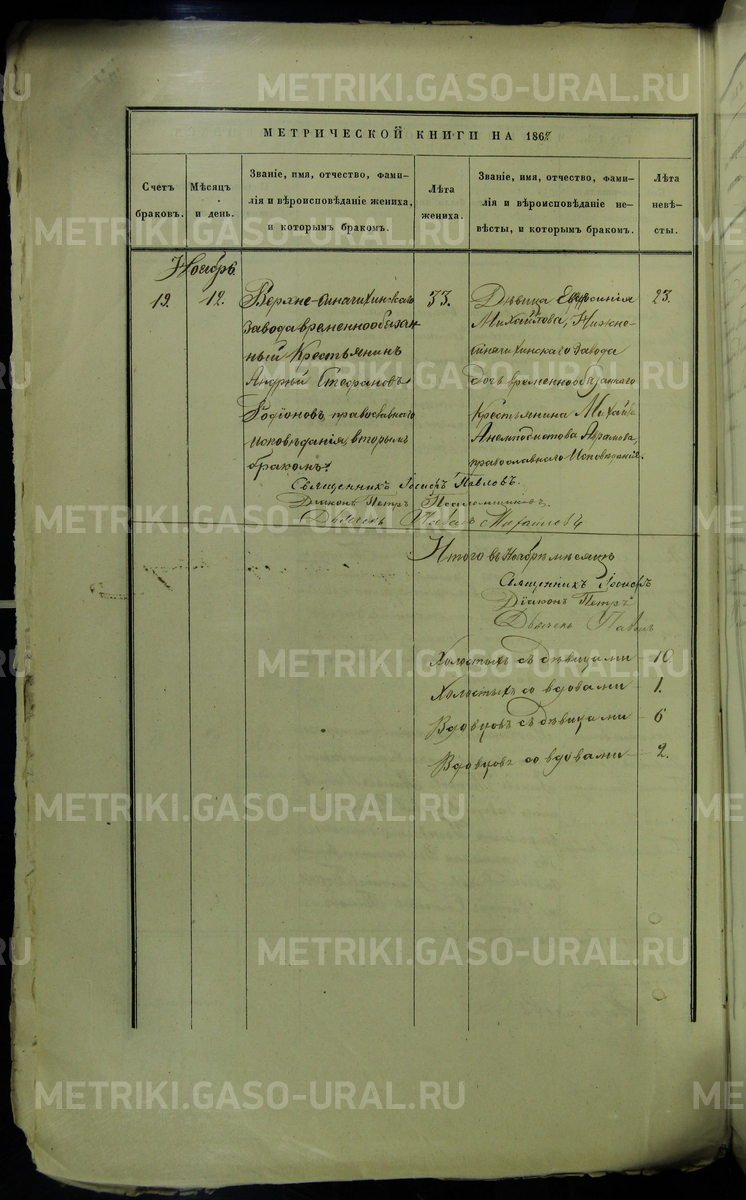 МЕТРИЧЕСКОЙ КНИГИ НА 1862
Счетъ браковъ.
Мѣсяцъ и день.
Званіе, имя, отчество, фами-
лія и вѣроисповѣданіе жениха,
и которымъ бракомъ.
Лѣта жениха.
Званіе, имя, отчество, фами-
лія и вѣроисповѣданіе не-
вѣсты, и которымъ бракомъ.
Лѣта невѣ-
сты.
Ноябрь
19. 12.
Верхне-Синячихинскаго
завода временнообязан
ный Крестьянинъ
Андрей Стефановъ
Родіоновъ, православнаго
исповѣданія, вторымъ
бракомъ.
33.
Дѣвица Евфросинія
Михайлова, Нижне-
синячихинскаго завода
дочь временнообязаннаго
Крестьянина Михайла
Анемподистова Абрамова,
православнаго Исповѣданія.
23.
Священникъ Іосифъ Павловъ.
Діаконъ Петръ
Дьячекъ Павелъ Михайловъ
Итого въ Ноябрѣ мѣсяцѣ
Священникъ Іосифъ
Діаконъ Петръ
Дьячекъ Павелъ
Холостыхъ съ дѣвицами – 10.
Холостыхъ со вдовами – 1.
Вдовцовъ съ дѣвицами – 6
Вдовцовъ со вдовами – 2.
METRIKI.GASO-URAL.RU